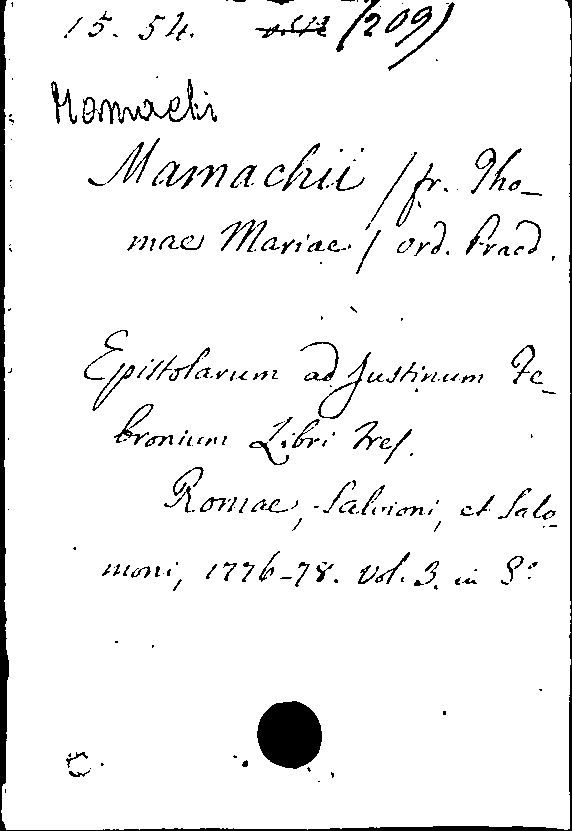 15. 54. (209)
Mamachi
Mamachii / fr. Tho-
mae Mariae / ord. Praed.
Epistolarum ad Justinum Fe-
bronium Libri tres.
Romae, Salvioni, et Salo-
moni, 1776-78. Vol. 3. in 8º